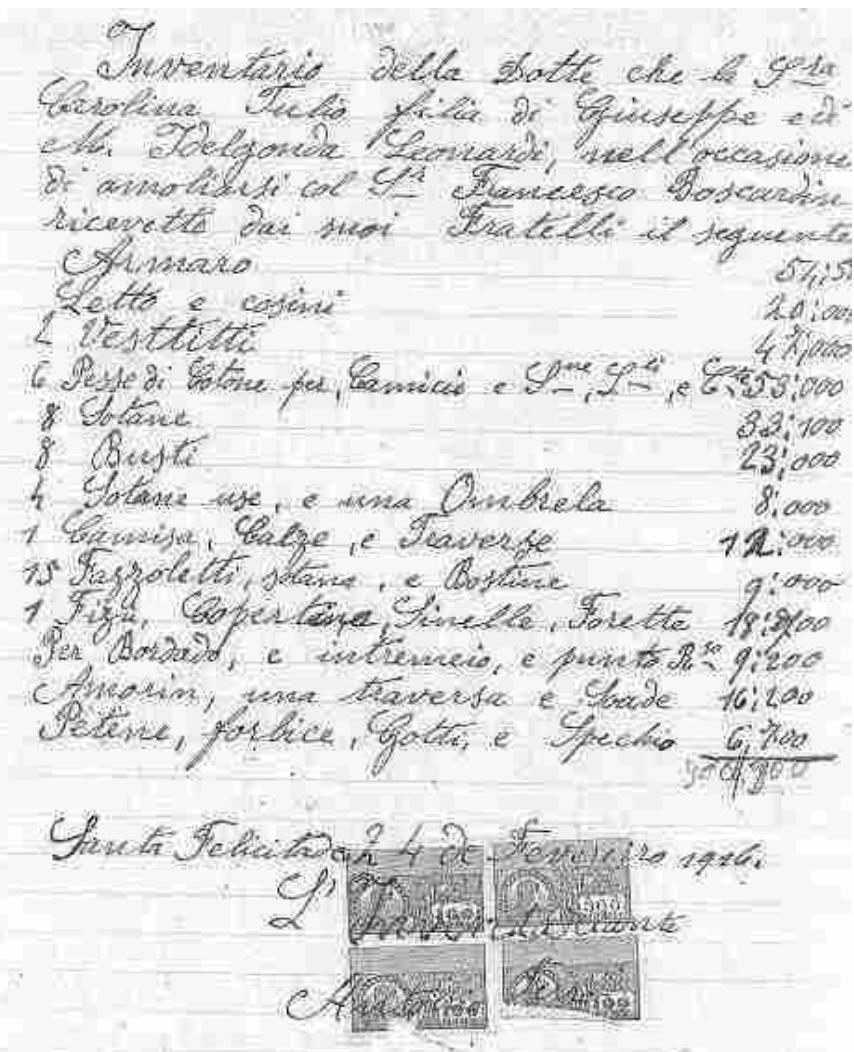 Inventario della Dotte che la S.ra
Carolina Tulio filia di Giuseppe e di
M. Idelgonda Leonardi, nell'occasione
di amoliarsi col S.r Francesco Boscardin
ricevette dai suoi Fratelli il seguente
Armaro 54;5
Letto e cosini 20;000
2 Vesttitti 47,000
6 Pesse di Cotone per, Camicie e S.me, L.li, e 53;000
8 Sotane 33;100
8 Busti 23;000
4 Sotane use, e una Ombrela 8;000
1 Camisa, Calze, e Traverse 12:000
15 Fazzoletti, sotana, e Bostine 9:000
1 Fizù, Copertina, Sinelle, Forette 18:
Per Bordado, e intremeio, e punto R.so 9;200
Amorin, una traversa e Scade 16;200
Petene, forbice, Gotti, e Spechio 6,700
Santa Felicitade 24 de Fevereiro 1926.
L'